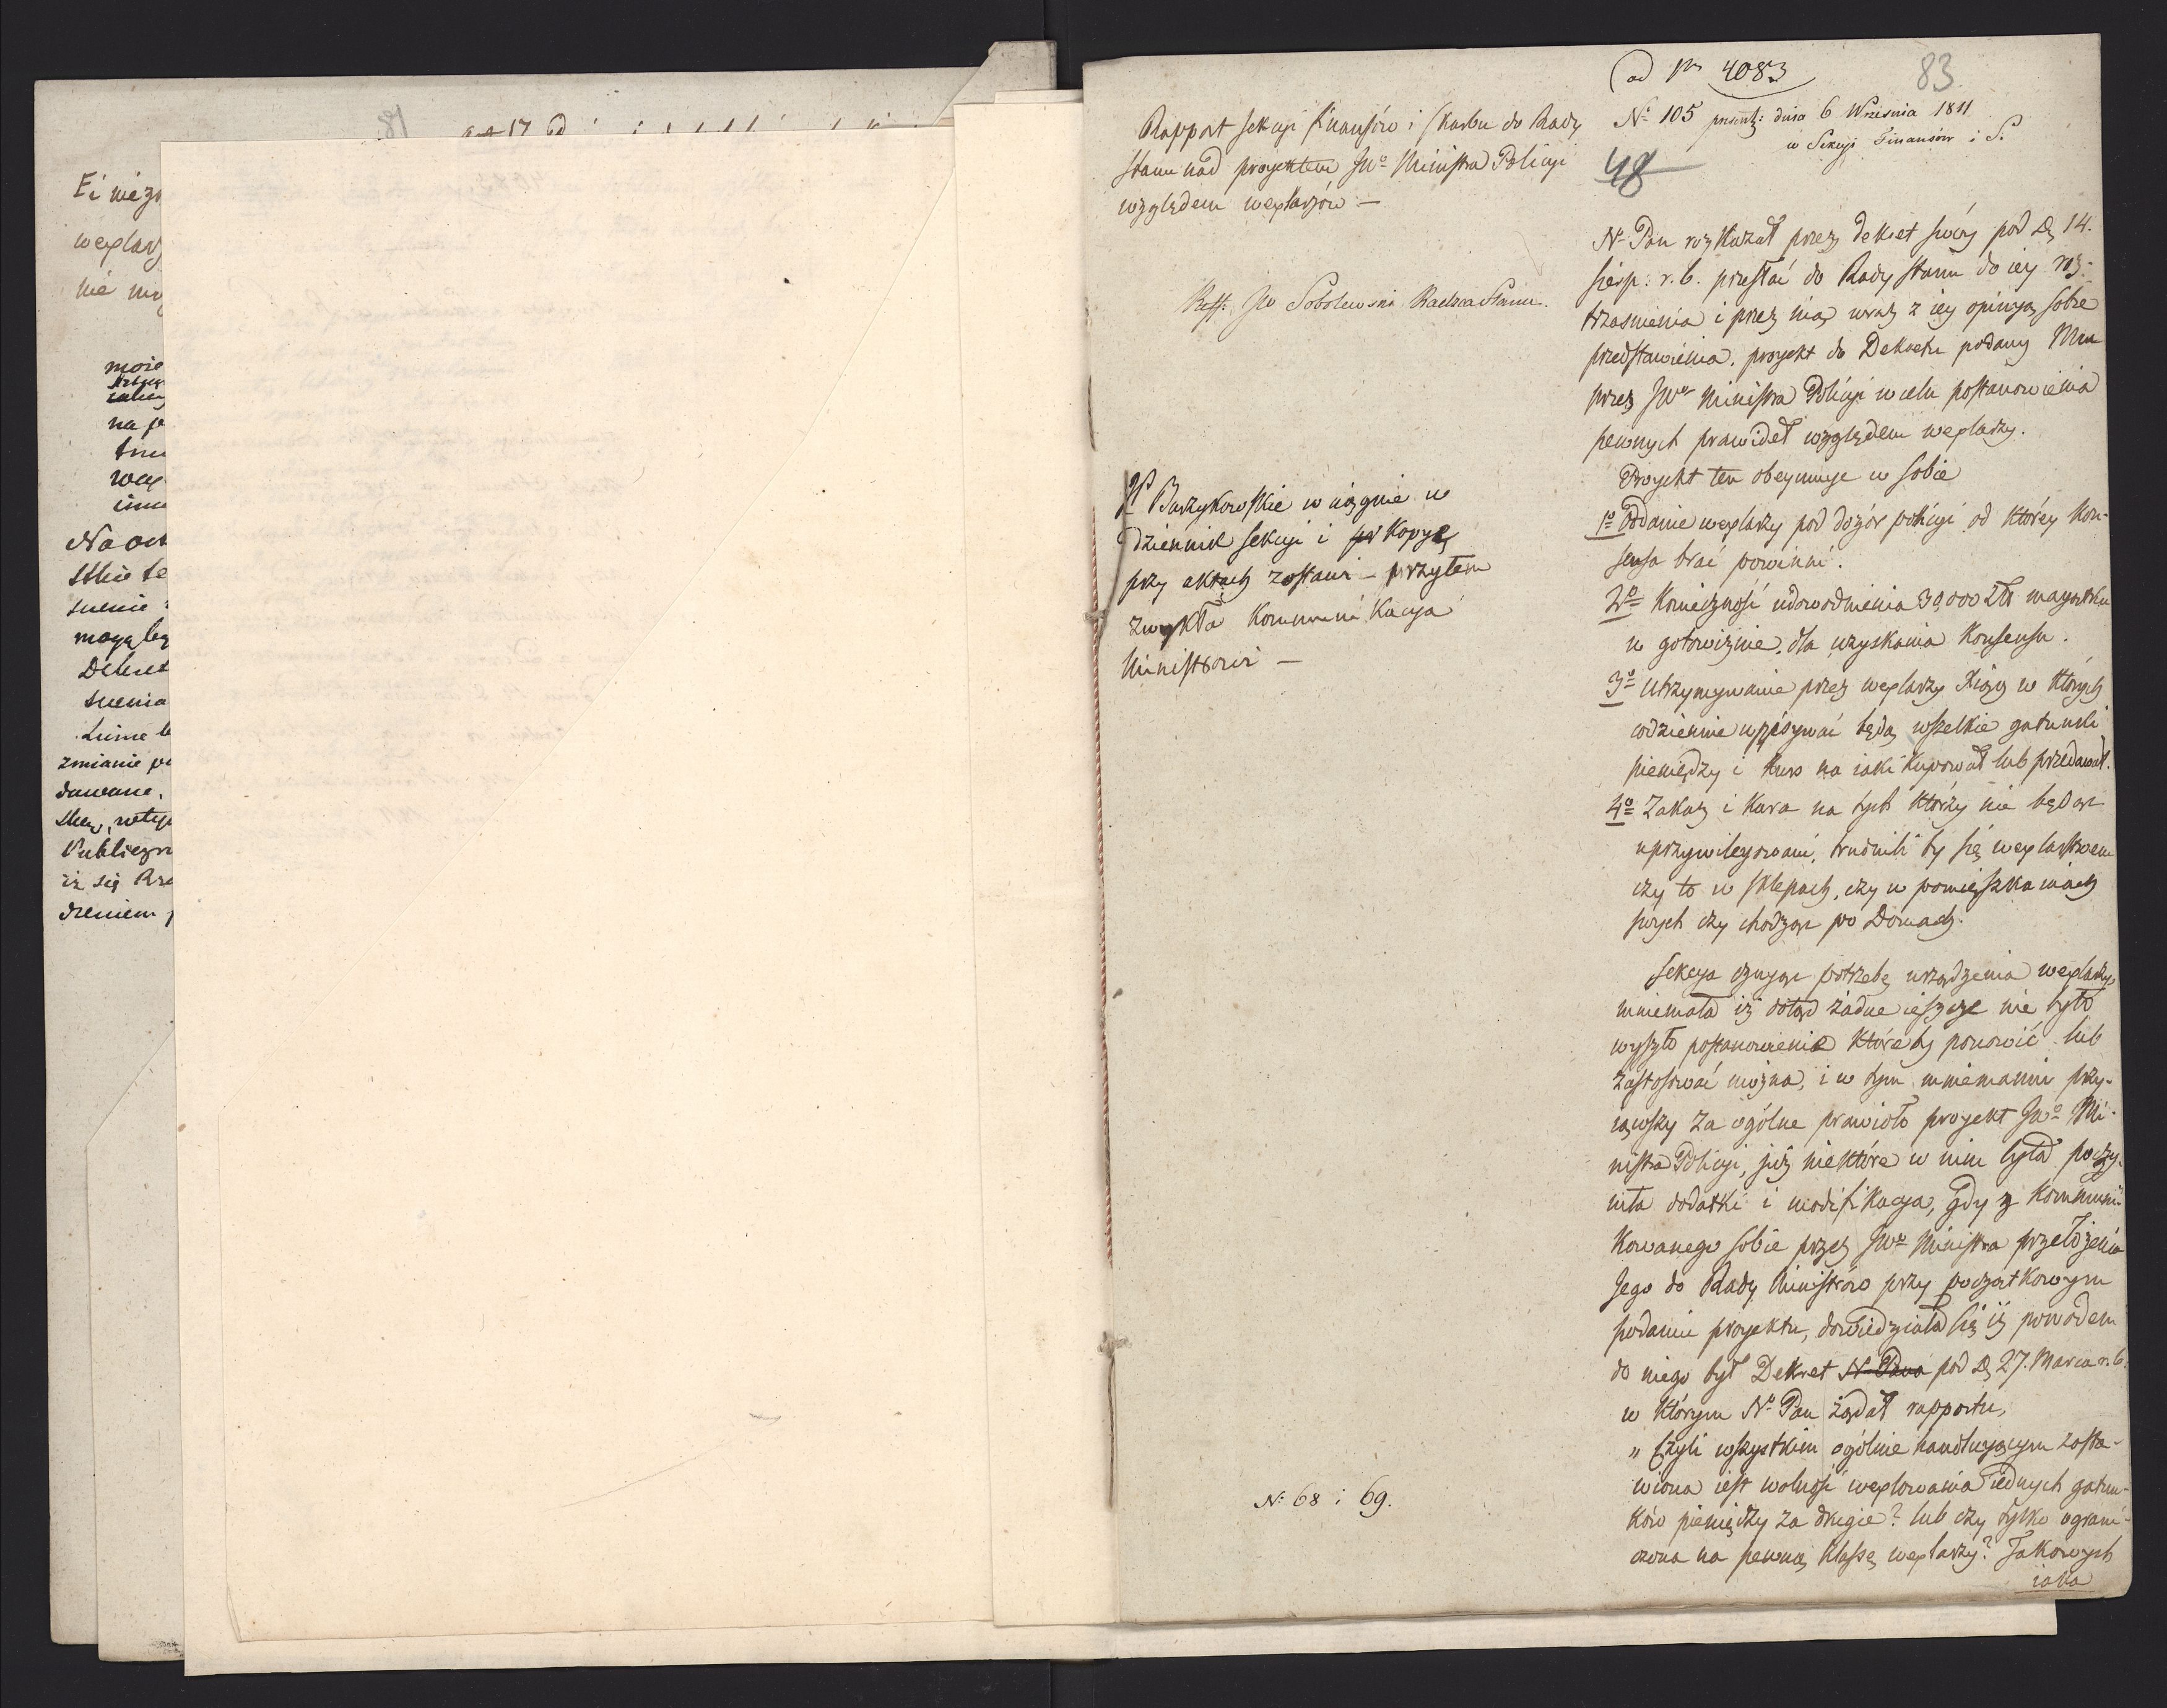 Ei niezn
wexlarz
nie mo
może
na je
trud
wex
inne
Na ost
stkie te
mogą być
Dekret
zmianie
dawane,
Publiczn
iż się Rzą
dzeniem
od Nr 4083
83
N 105 praesent: dnia 6 Wrzesnia 1811
w Sekcyi Finansów i S.
48
Rapport sekcyi finansów i skarbu do Rady
stanu nad projektem JWo Ministra Policyi
względem wexlarzów —
Reff: JW Sobolewski Radzca Stanu.
JP Buczykowskie wciągnie w
dziennik sekcyi i kopyę
przy aktach zostawi — przytem
zwykła kommunikacya
Ministrowi —
N: 68 i 69.
N. Pan rozkazał przez dekret swóy pod D, 14.
sierp: r. b. przesłać do Rady stanu do iey roz-
trząśnienia i przez nią wraz z iey opinyą sobie
przedstawienia, projekt do Dekretu podany Mu
przez JWo Ministra Policyi w celu postanowienia
pewnych prawideł względem wexlarzy.
Projekt ten obeymuje w sobie
1o Oddanie wexlarzy pod dozór policyi od którey kon-
sensa brać powinni.
2o Konieczność udowodnienia 30,000 Złt maiątku
w gotowiznie, dla uzyskania Konsensu.
3o Utrzymywanie przez wexlarzy Xiąg w których
codziennie wpisywać będą wszelkie gatunki
pieniędzy i kurs na iaki kupował lub przedawał.
4o Zakaz i kara na tych którzy nie będąc
uprzywilejowani, trudnili by się wexlarstwem
czy to w sklepach, czy w pomięszkaniach
swych czy chodząc po Domach.
Sekcya czując potrzebę urządzenia wexlarzy,
mniemała iż dotąd żadne ieszcze nie było
wyszło postanowienie któreby ponowić lub
zastosować można, i w tym mniemaniu przy-
iąwszy za ogólne prawidło projekt JWo Mi-
nistra Policyi, już niektóre w nim była poczy-
niła dodatki i modifikacya, gdy z kommuni-
kowanego sobie przez JWo Ministra przełożenia
Jego do Rady Ministrów przy początkowym
podaniu projektu, dowiedziała się iż powodem
do niego był Dekret N. Pana pod D, 27. Marca r. b.
w którym No Pan żądał rapportu,
" Czyli wszystkim ogólnie handlującym zosta-
wiona iest wolność wexlowania iednych gatun-
ków pieniędzy za drugie? lub czy tylko ograni-
czona na pewną klassę wexlarzy? Jakowych
iaka